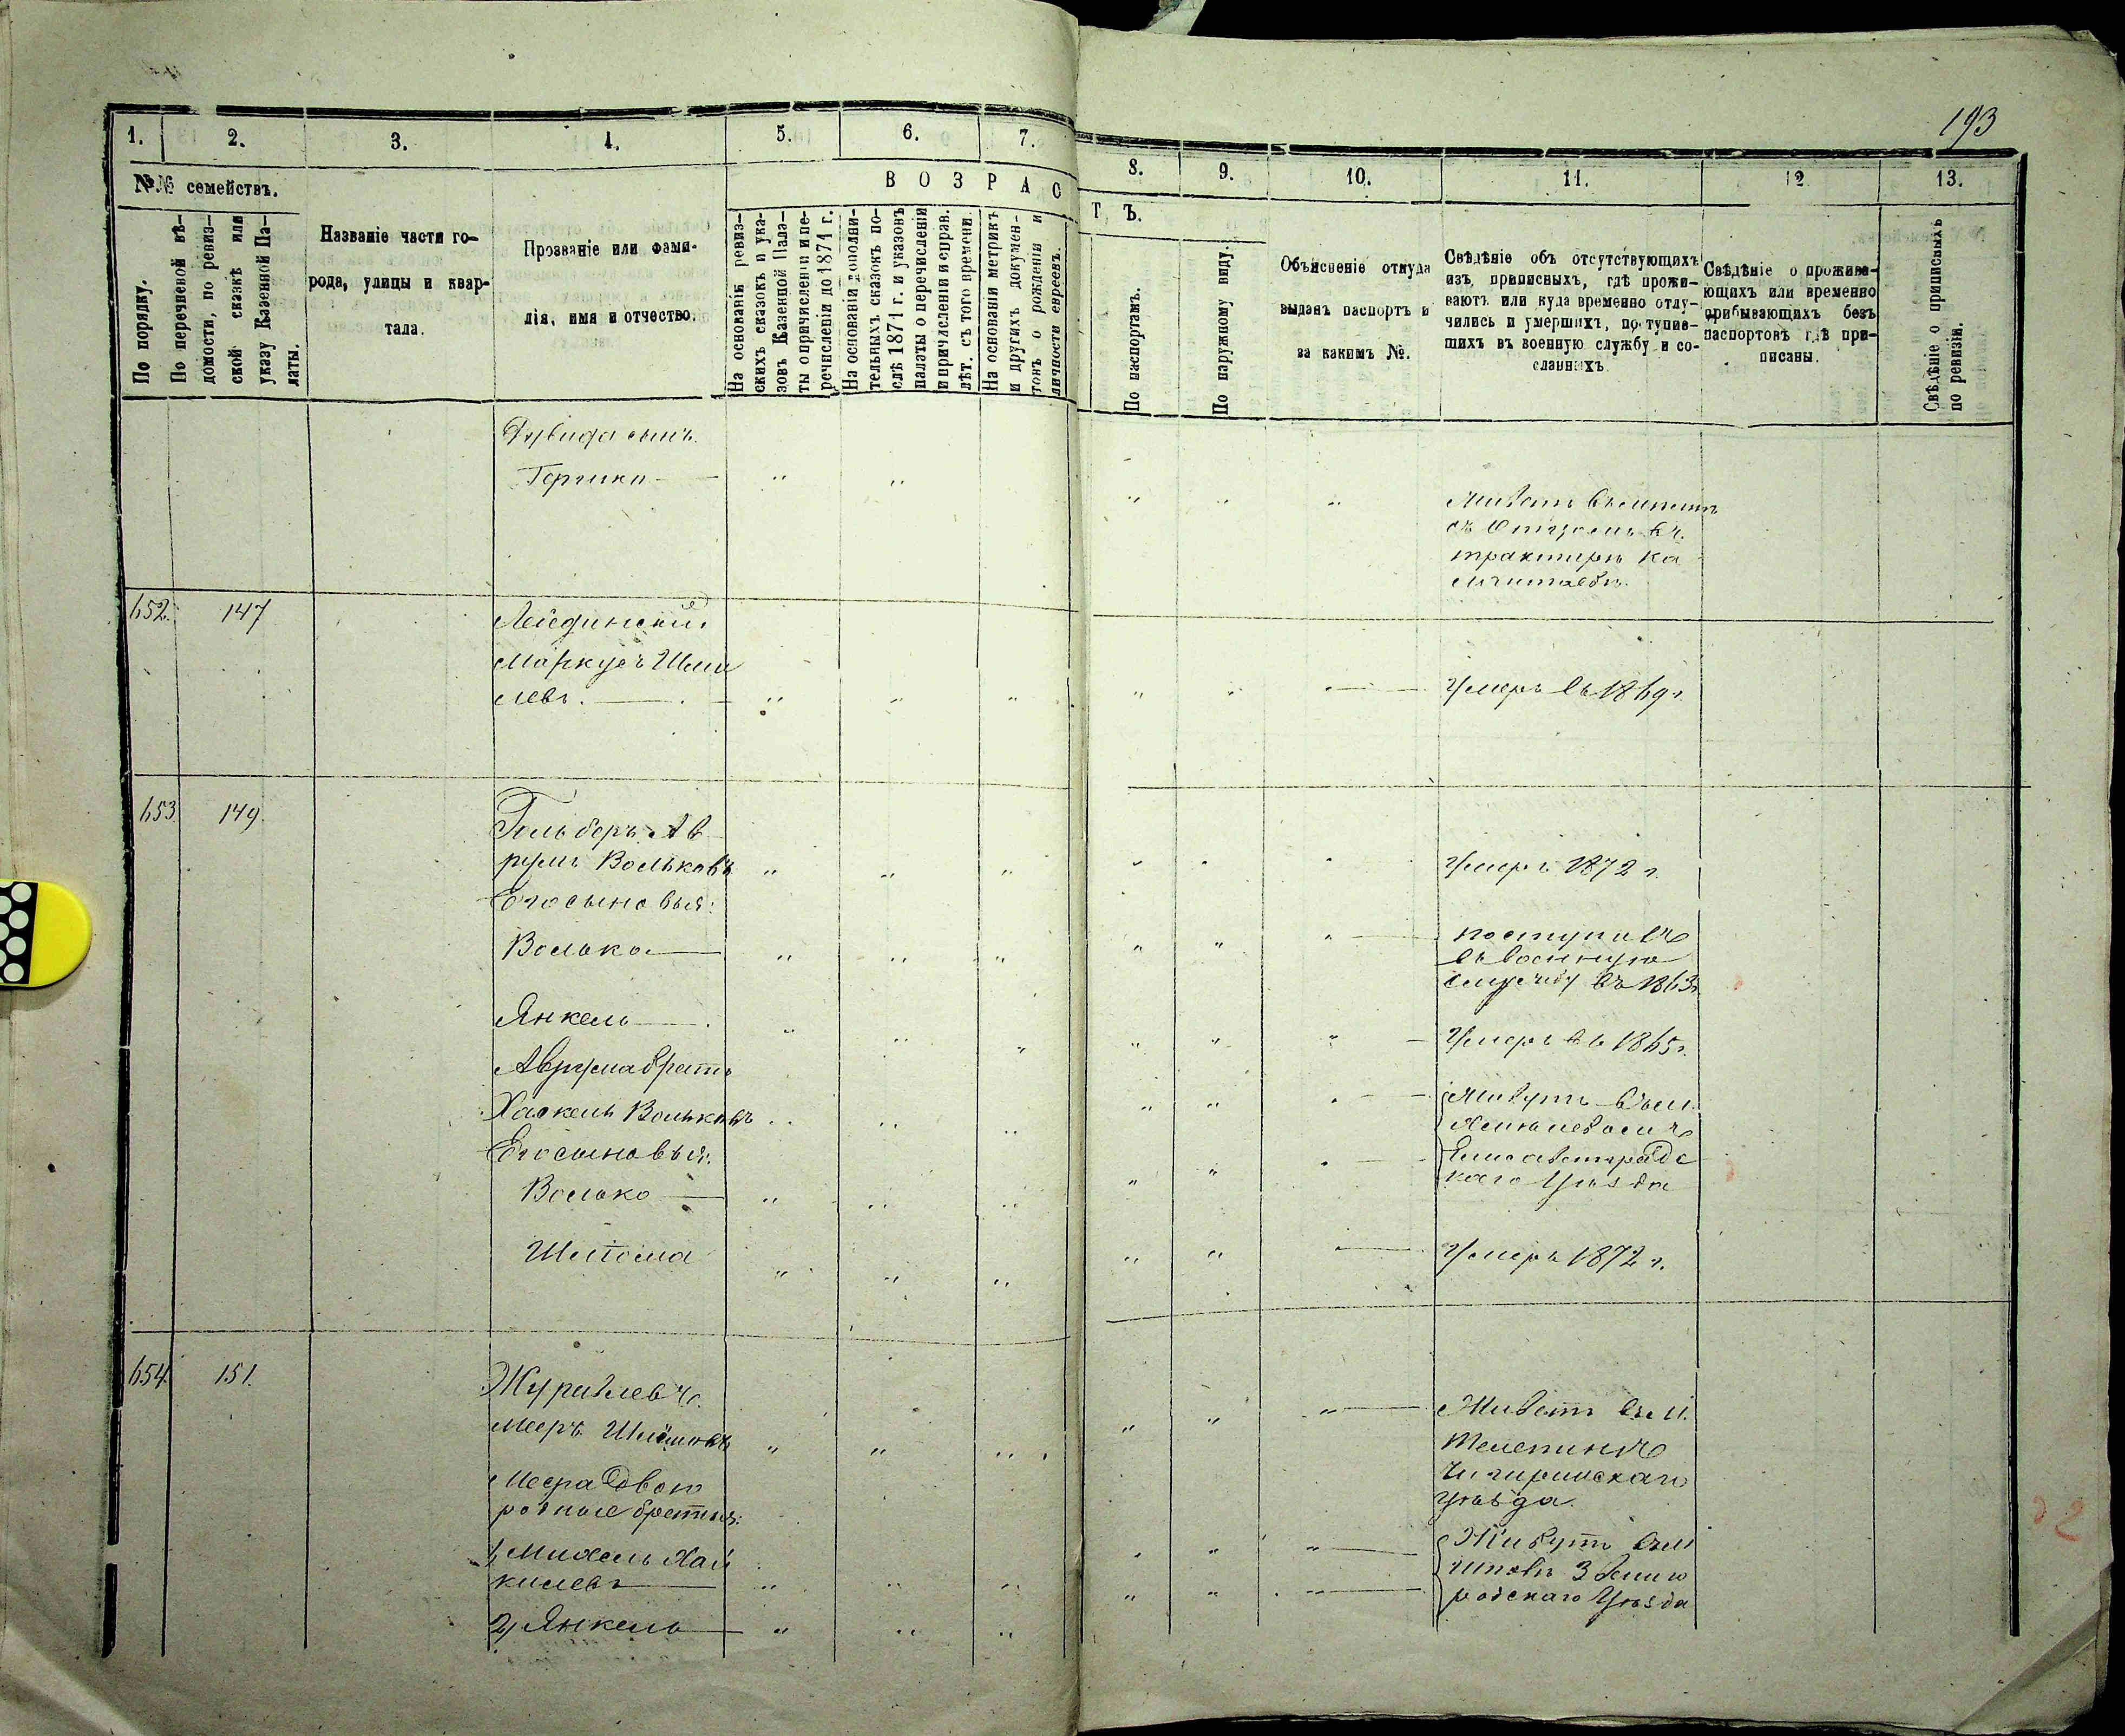 193
1. 2. 3. 4. 5. 6. 7. 8. 9. 10. 11. 12 13.
№№ семействъ.
По порядку.
По перечневой вѣ-
домости, по ревиз-
ской сказкѣ или
указу Казенной Па-
латы.
Названіе части го-
рода, улицы и квар-
тала.
Прозваніе или фами-
лія, имя и отчество.
ВОЗРАСТЪ.
На основаніи ревиз-
скихъ сказокъ и ука-
зовъ Казенной Пала-
ты о причисленіи и пе-
речисленіи до 1871 г.
На основаніи дополни-
тельныхъ сказокъ по-
слѣ 1871 г. и указовъ
палаты о перечисленіи
и причисленіи и справ.
лѣт. съ того времени.
На основаніи метрикъ
и другихъ докумен-
товъ о рожденіи и
личности евреевъ.
По паспортамъ.
По наружному виду.
Объясненіе откуда
выданъ паспортъ и
за какимъ №.
Свѣдѣніе объ отсутствующихъ
изъ приписныхъ, гдѣ прожи-
ваютъ или куда временно отлу-
чились и умершихъ, поступив-
шихъ въ военную службу и со-
сланныхъ
Свѣдѣніе о прожива-
ющихъ или временно
прибывающихъ безъ
паспортовъ гдѣ при-
писаны.
Свѣдѣніе о приписныхъ
по ревизіи.
Дувида сынъ.
" " " " "
Живетъ вместѣ
съ Отцомъ въ
трактирѣ Ка
652. 147
Маркусъ Шми
левъ. " " " " " Умеръ въ 1869 г.
653 149.
Гольберъ Ав
румъ Вольковъ " " " " " " Умеръ 1872 г.
Его сыновья:
Волько " " " " " " поступилъ
въ военную
службу въ 1863 г.
Янкель " " " " " " Умеръ въ 1865 г.
Аврума братъ
Хаскель Вольковъ " " " " " " Живутъ въ м.
Его сыновья:
Елисаветградс
каго Уѣзда
Волько " " " " " "
Шлёма " " " " " Умеръ 1872 г.
654. 151.
Журавлевъ
Мееръ Шлёмовъ " " " " " " Живетъ въ м.
Телепинѣ
Чигиринскаго
уѣзда.
Меера Двою
родные братья:
1, Михель Хай
килевъ " " " " " "
Живутъ въ м
Шполѣ Звениго
родскаго Уѣзда
2, Янкель " " " " " "